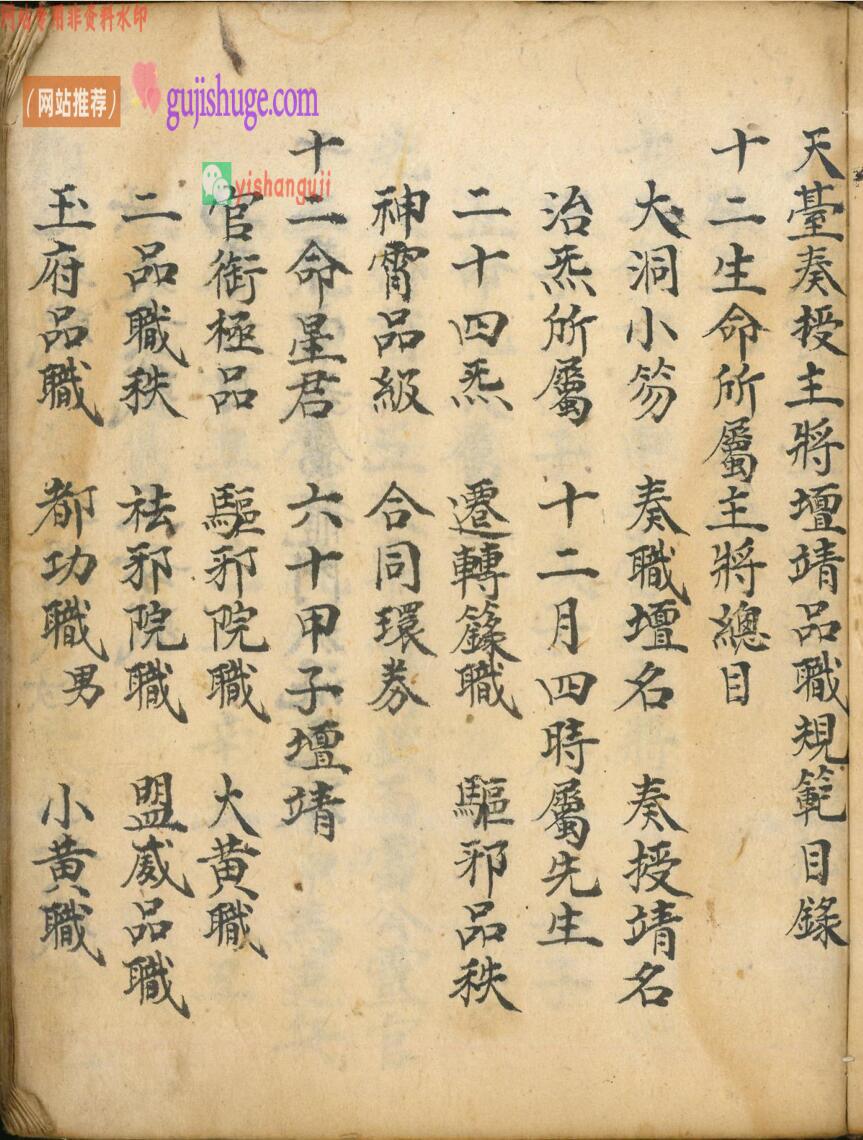 网站专用非资料水印
（网站推荐）
gujishuge.com
yishanguji
天臺奏授主將壇靖品職規範目錄
十二生命所屬主將總目
大洞小笏　奏職壇名　奏授靖名
治炁所屬　十二月四時屬先生
二十四炁　遷轉籙職　驅邪品秩
神霄品級　合同環券
十二命星君　六十甲子壇靖
官銜極品　驅邪院職　大黃職
二品職秩　祛邪院職　盟威品職
玉府品職　都功職男　小黃職